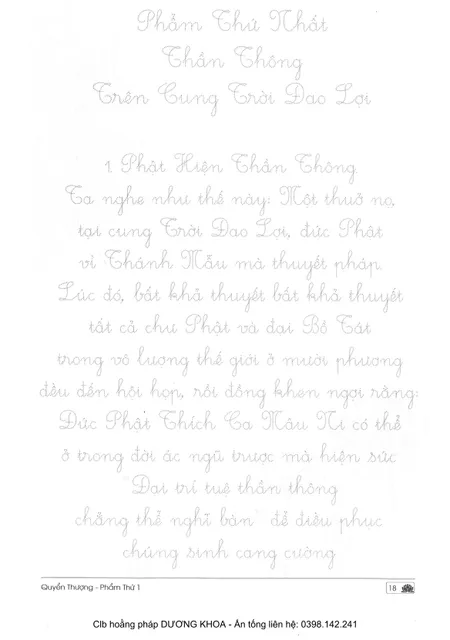 Phẩm Thứ Nhất
Thần Thông
Trên Cung Trời Đao Lợi
1. Phật Hiện Thần Thông
Ta nghe như thế này: Một thuở nọ,
tại cung Trời Đao Lợi, đức Phật
vì Thánh Mẫu mà thuyết pháp.
Lúc đó, bất khả thuyết bất khả thuyết
tất cả chư Phật và đại Bồ Tát
trong vô lượng thế giới ở mười phương
đều đến hội họp, rồi đồng khen ngợi rằng:
Đức Phật Thích Ca Mâu Ni có thể
ở trong đời ác ngũ trược mà hiện sức
"Đại trí tuệ thần thông
chẳng thể nghĩ bàn" để điều phục
chúng sinh cang cường
Quyển Thượng - Phẩm Thứ 1
18
Clb hoằng pháp DƯƠNG KHOA - Ấn tống liên hệ: 0398.142.241